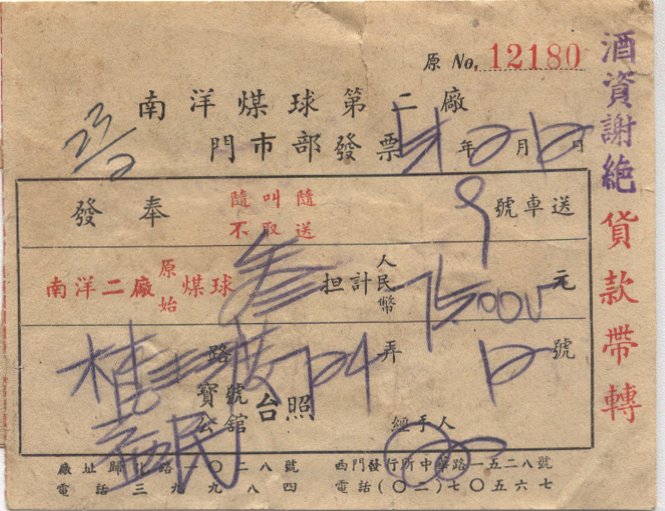 原 No. 12180
南洋煤球第二廠
門市部發票 年 月 日
奉發 隨叫隨送 不取 9 號車送
南洋二廠原始煤球 叁 担計人民幣 元
路 弄 號
寶號 公舘 台照
益民
經手人
廠址歸化路一〇二八號
電話三九九八四
西門發行所中華路一五二八號
電話(〇二)七〇五六七
酒資謝絶
貨款帶轉